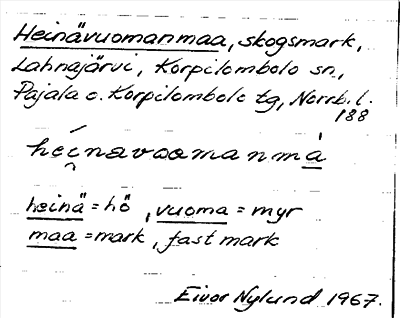 Heinävuomanmaa, skogsmark,
Lahnajärvi, Korpilombolo sn,
Pajala o. Korpilombolo tg, Norrb. l.
188
heinavoomanmá
heinä = hö, vuoma = myr
maa = mark, fast mark
Eivor Nylund 1967.